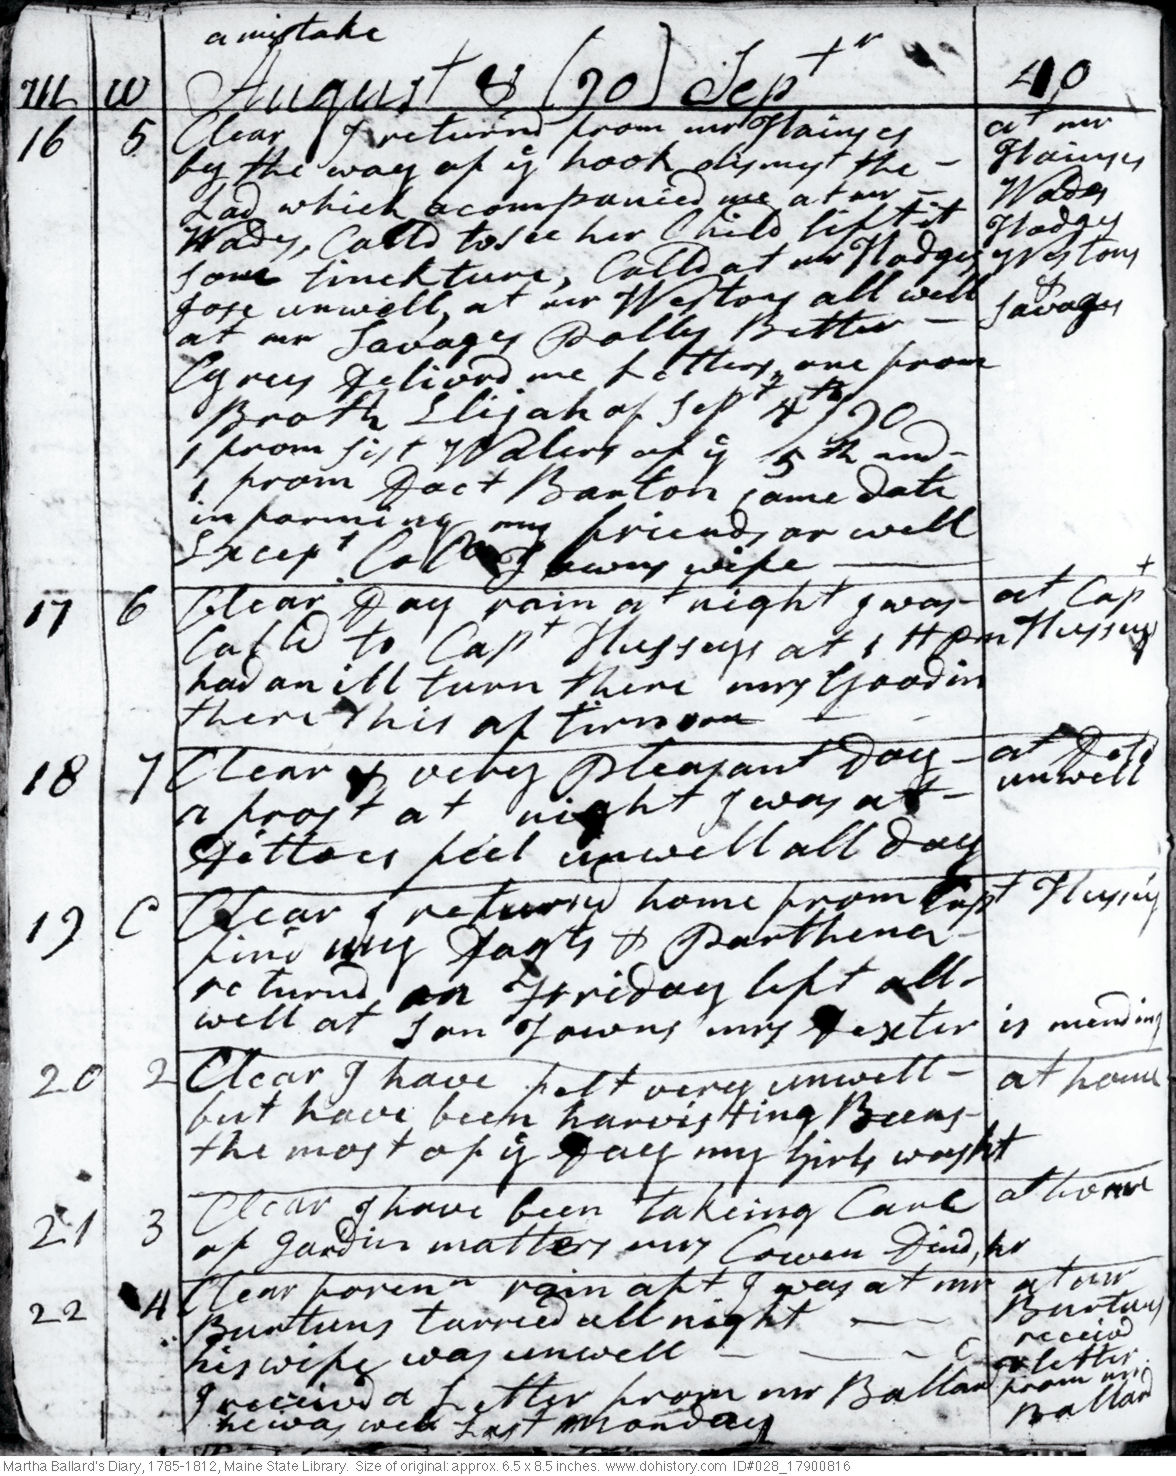 a mistake
M W August & (90) Septr 40
16 5 Clear I returnd from mr Hainses at mr
by the way of ye hook dismst the - Hainses
Lad which acompanied me at mr - Wades
Wades, Calld to see her Child left it Hodges
some tinckture, Calld at mr Hodges Westons
Jose unwell, at mr Westons all well &
at mr Savages Dolly Better - Savages
Cyrus Deliverd me Letters, one from
Broth Elijah of Sept 4th 90
1 from Sist Waters of ye 5th and -
1 from Doct Barton same date
informing my friends ar well
Except Coll Towns wife
17 6 Clear Day rain at night I was - at Capt
Calld to Capt Husseys at 1 H pm Husseys
had an ill turn there mrs Goodin
there this aftirnoon
18 7 Clear & very pleasant Day - at Do I
a frost at night I was at - unwell
Dittoes feel unwell all Day
19 C Clear I returnd home from Capt Husseys
find my Dagts & Parthena -
returnd on Friday left all -
well at Son Towns mrs Dexter is mending
20 2 Clear I have felt very unwell - at home
but have been harvisting Beens -
the most of ye Day my Girls washt
21 3 Clear I have been takeing Care at home
of gardin matters mrs Cowen Dind, hr
22 4 Clear foren n rain aft I was at mr at mr
Burtuns tarried all night Burtuns
his wife was unwell receivd
I receivd a Letter from mr Ballard a letter
he was well Last Monday from mr
Ballard
Martha Ballard's Diary, 1785-1812, Maine State Library. Size of original: approx. 6.5 x 8.5 inches. www.dohistory.com ID#028_17900816